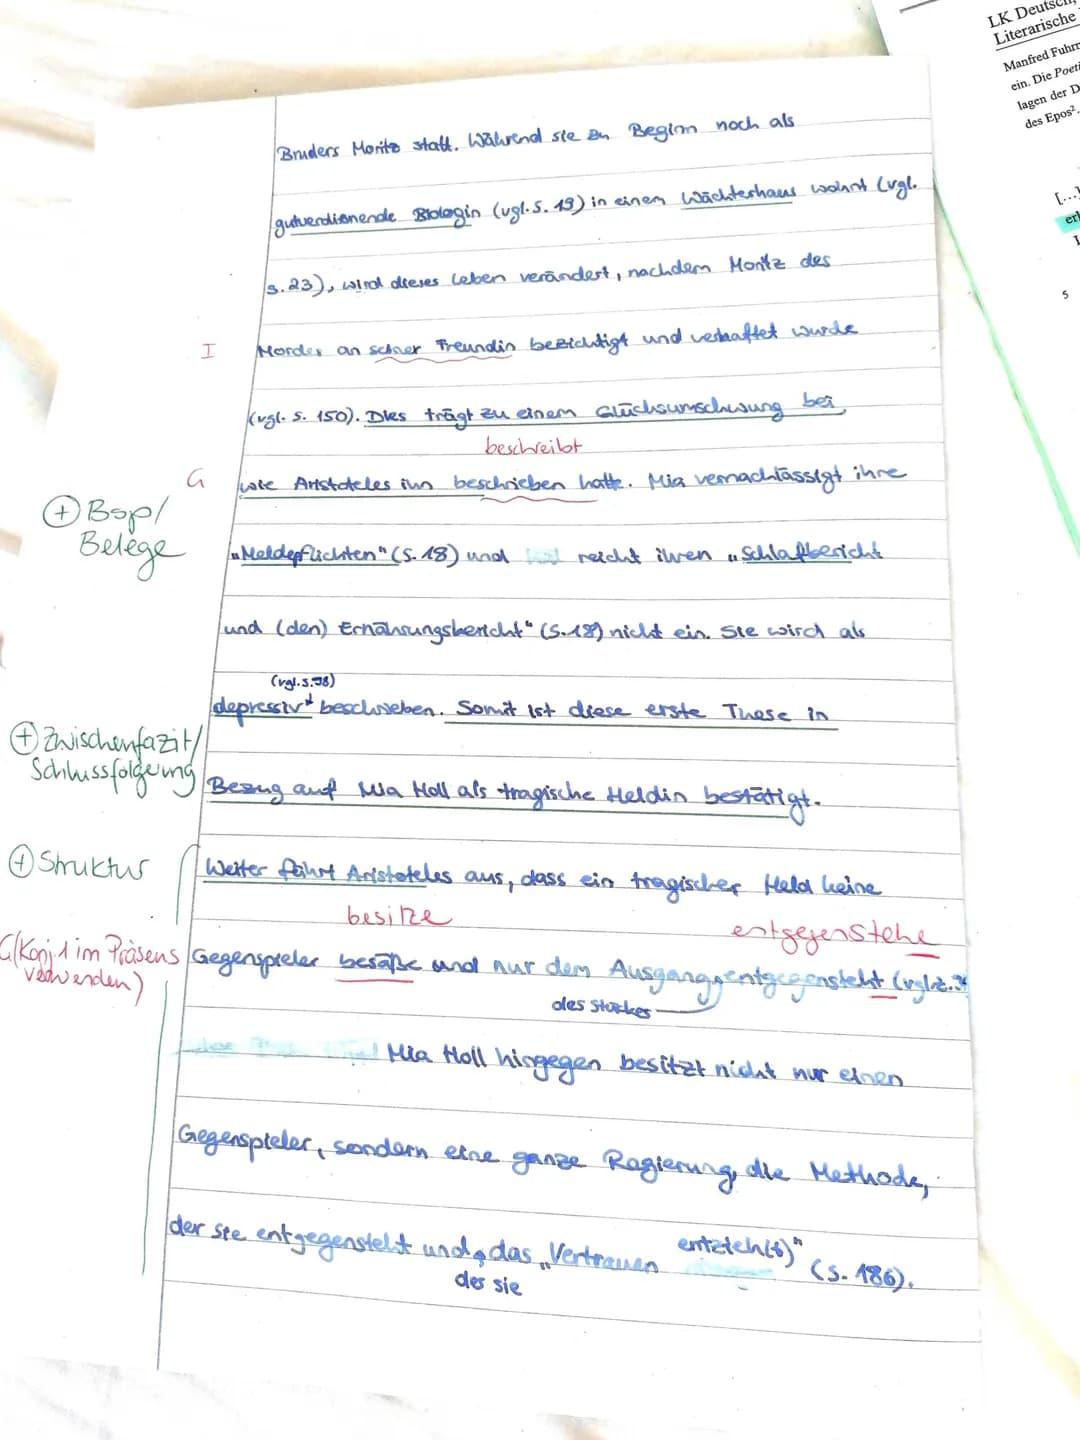 LK Deutsch,
Literarische
Manfred Fuhrm
ein. Die Poeti
lagen der D
des Epos².
[...]
erl
5
Bruders Moritz statt. Während sie zu Beginn noch als
gutverdienende Biologin (vgl. S. 19) in einem Wächterhaus wohnt (vgl.
S. 23), wird dieses Leben verändert, nachdem Moritz des
I Mordes an seiner Freundin bezichtigt und verhaftet wurde
(vgl. S. 150). Dies trägt zu einem Glücksumschwung bei,
beschreibt
G wie Aristoteles ihn beschrieben hatte. Mia vernachlässigt ihre
⊕ Bsp/
Belege
„Meldepflichten" (S. 18) und reicht ihren „Schlafbericht
und (den) Ernährungsbericht" (S. 18) nicht ein. Sie wird als
(vgl. S. 78)
depressiv beschrieben. Somit ist diese erste These in
⊕ Zwischenfazit/
Schlussfolgerung
Bezug auf Mia Holl als tragische Heldin bestätigt.
⊕ Struktur
Weiter führt Aristoteles aus, dass ein tragischer Held keine
besitze entgegenstehe
G (Konj. 1 im Präsens
verwenden)
Gegenspieler besäße und nur dem Ausgang entgegensteht (vgl. Z.
des Stückes
Mia Holl hingegen besitzt nicht nur einen
Gegenspieler, sondern eine ganze Regierung, die Methode,
der sie entgegensteht und das „Vertrauen entzieh(t)" (S. 186).
der sie